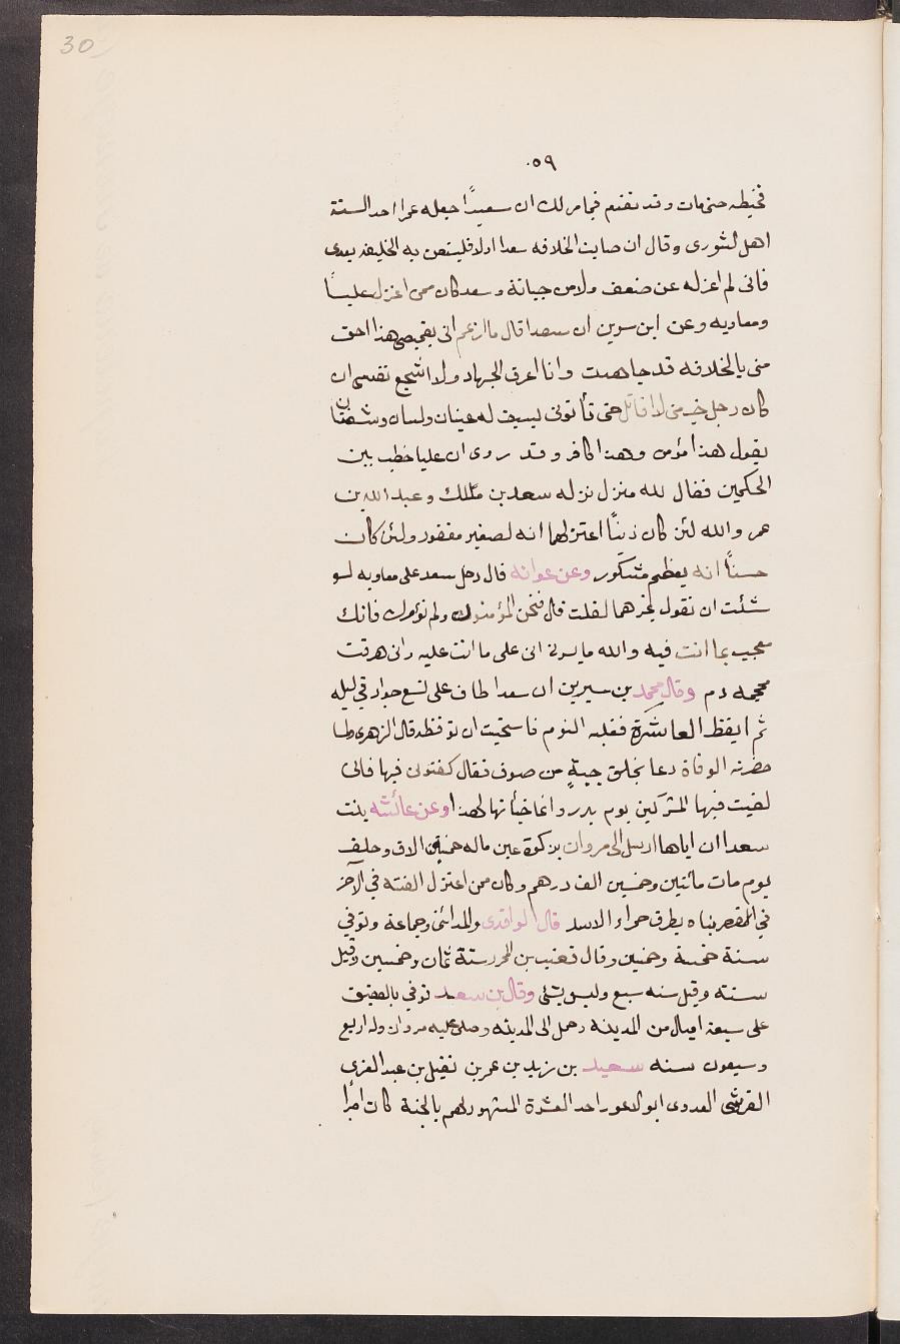 30
٠٥٩
فخبطه حتى مات وقد تقدم فيما مر لك ان سعيدًا جعله عمرا احد الستة
اهل لشورى وقال ان صابت الخلافه سعدا اولا فليستعن به الخليفه بعدى
فانى لم اعزله عن ضعف ولا من خيانة وسعد كان ممن اعتزل عليًا
ومعاويه وعن ابن سيرين ان سعدا قال ما ازعم انى بقميصى هذا احق
منى بالخلافه قد جاهدت وانا اعرف الجهاد ولا انجع نفسى ان
كان رجل خير منى لا اقاتل حتى تأتونى بسيف له عينان ولسان وشفتان
يقول هذا مؤمن وهذا كافر وقد روى ان عليا خطب بين
الحكمين فقال لله منزل نزله سعد بن مالك وعبد الله بن
عمر والله لئن كان ذنبًا اعتزلهما انه لصغير مغفور ولئن كان
حسنًا انه يعظم مشكور وعن عوانه قال دخل سعد على معاويه لو
شئت ان تقول غيرهما لقلت قال فنحن المؤمنون ولم نؤمرك فانك
معجب بما انت فيه والله ما يسرنى انى على ما انت عليه وانى هرقت
محجمه دم وقال محمد بن سيرين ان سعدا طاف على تسع جوار في ليله
ثم ايقظ العاشرة فغلبه النوم فاستحيت ان توقظه قال الزهرى لما
حضرته الوفاة دعا بخلق جبةٍ من صوف فقال كفنونى فيها فانى
لقيت فيها المشركين يوم بدر وانما خبأتها لهذا وعن عائشه بنت
سعدا ان اباها ارسل الى مروان بزكوة عين ماله خمسين الاف وخلف
يوم مات مائتين وخمسين الف درهم وكان ممن اعتزل الفتنه في الآخر
في القصر بناه بطرف حمراء الاسد قال الواقدى والمدائنى وجماعة وتوفي
سنة خمسة وخمسين وقال قعنب بن المحرر سنة ثمان وخمسين وقيل
سنته وقيل سنه سبع وليس بشئى وقال بن سعد توفي بالعقيق
على سبعة اميال من المدينه وحمل الى المدينه وصلى عليه مروان وله اربع
وسبعون سنه سعيد بن زيد بن عمر بن نفيل بن عبد العزى
القرشى العدوى ابو الاعور احد العشرة المشهود لهم بالجنة كان امرًا